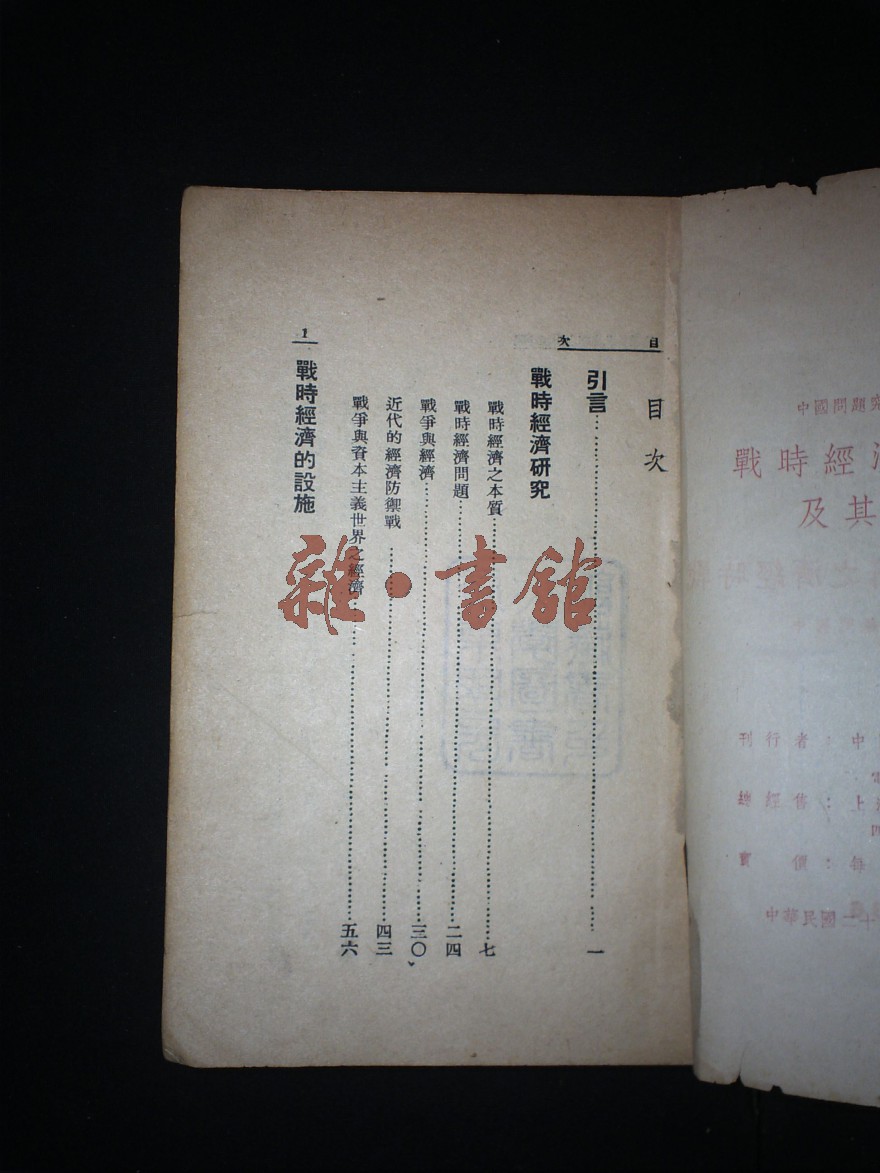 目次
目次
引言 一
戰時經濟研究
戰時經濟之本質 七
戰時經濟問題 二四
戰爭與經濟 三〇
近代的經濟防禦戰 四三
戰爭與資本主義世界之經濟 五六
戰時經濟的設施
1
雜·書館
中國問題
戰時經濟
及其
刊行者：中
總經售：上
實價：每
中華民國二十